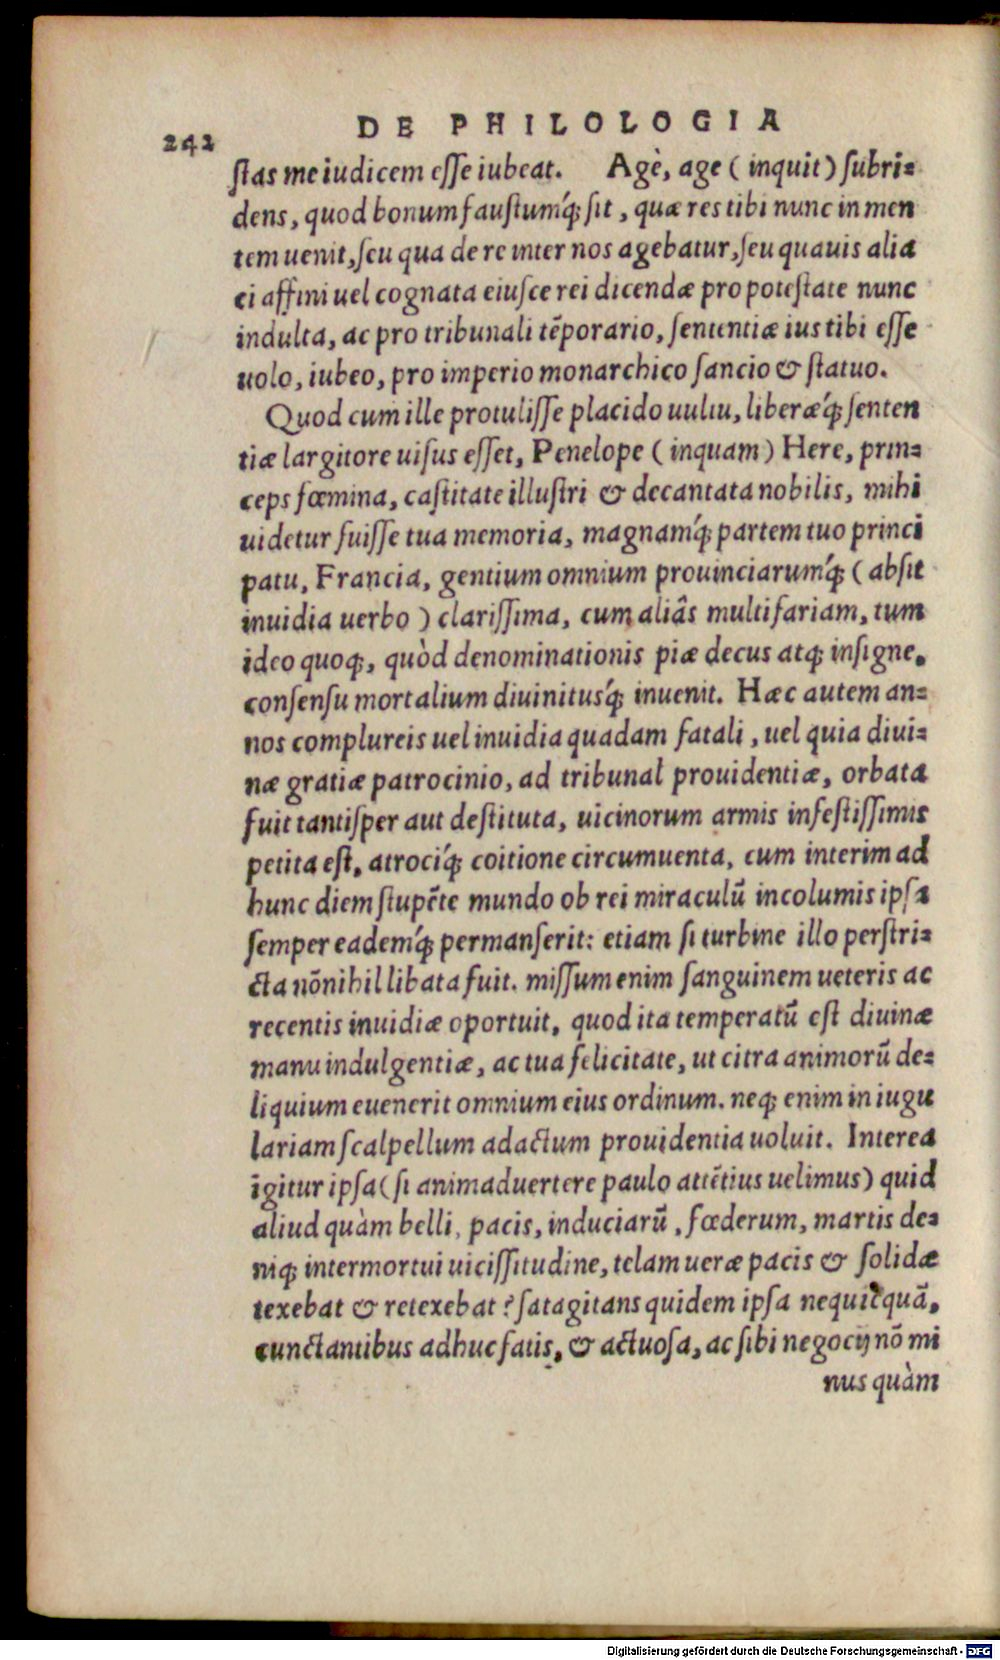 DE PHILOLOGIA
242
ſtas me iudicem eſſe iubeat. Agè, age ( inquit ) ſubri⸗
dens, quod bonum fauſtumq́ꝫ ſit, quæ res tibi nunc in men
tem uenit, ſeu qua de re inter nos agebatur, ſeu quauis alia
ei affini uel cognata eiuſce rei dicendæ pro poteſtate nunc
indulta, ac pro tribunali tēporario, ſententiæ ius tibi eſſe
uolo, iubeo, pro imperio monarchico ſancio & ſtatuo.
Quod cum ille protuliſſe placido uultu, liberæq́ꝫ ſenten
tiæ largitore uiſus eſſet, Penelope ( inquam ) Here, prin⸗
ceps fœmina, caſtitate illuſtri & decantata nobilis, mihi
uidetur fuiſſe tua memoria, magnamq́ꝫ partem tuo princi
patu, Francia, gentium omnium prouinciarumq́ꝫ ( abſit
inuidia uerbo ) clariſſima, cum aliâs multifariam, tum
ideo quoqꝫ, quòd denominationis piæ decus atqꝫ inſigne,
conſenſu mortalium diuinitusq́ꝫ inuenit. Hæc autem an⸗
nos complureis uel inuidia quadam fatali, uel quia diui⸗
næ gratiæ patrocinio, ad tribunal prouidentiæ, orbata
fuit tantiſper aut deſtituta, uicinorum armis infeſtiſſimis
petita eſt, atrociq́ꝫ coitione circumuenta, cum interim ad
hunc diem ſtupēte mundo ob rei miraculū incolumis ipſa
ſemper eademq́ꝫ permanſerit: etiam ſi turbine illo perſtri⸗
cta nōnihil libata fuit. miſſum enim ſanguinem ueteris ac
recentis inuidiæ oportuit, quod ita temperatū eſt diuinæ
manu indulgentiæ, ac tua felicitate, ut citra animorū de⸗
liquium euenerit omnium eius ordinum. neqꝫ enim in iugu
lariam ſcalpellum adactum prouidentia uoluit. Interea
igitur ipſa ( ſi animaduertere paulo attētius uelimus ) quid
aliud quàm belli, pacis, induciarū, fœderum, martis de⸗
niqꝫ intermortui uiciſſitudine, telam ueræ pacis & ſolidæ
texebat & retexebat? ſatagitans quidem ipſa nequicquā,
cunctantibus adhuc fatis, & actuoſa, ac ſibi negocij nō mi
nus quàm
Digitalisierung gefördert durch die Deutsche Forschungsgemeinschaft - DFG